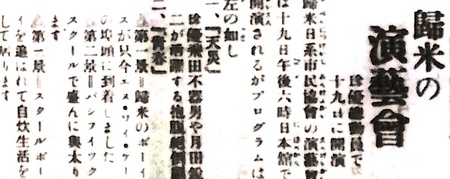 歸米の
演藝會
珍優總動員で
十九日に開演
歸米日系市民協會の演藝會
は十九日午後六時日本館で
開演されるがプログラムは
左の如し
一、『天災』
珍優飛田不器男や月田
二が活躍する抱腹絶倒
二、『靑春』
第一景―歸米のボーイ
スが只今エス・ワイ・ケー
の埠頭に到着しました
第二景―パシフイツク
スクールで盛んに與太り
第一景―スクールボー
イを追はれて自炊生活を
して居ります